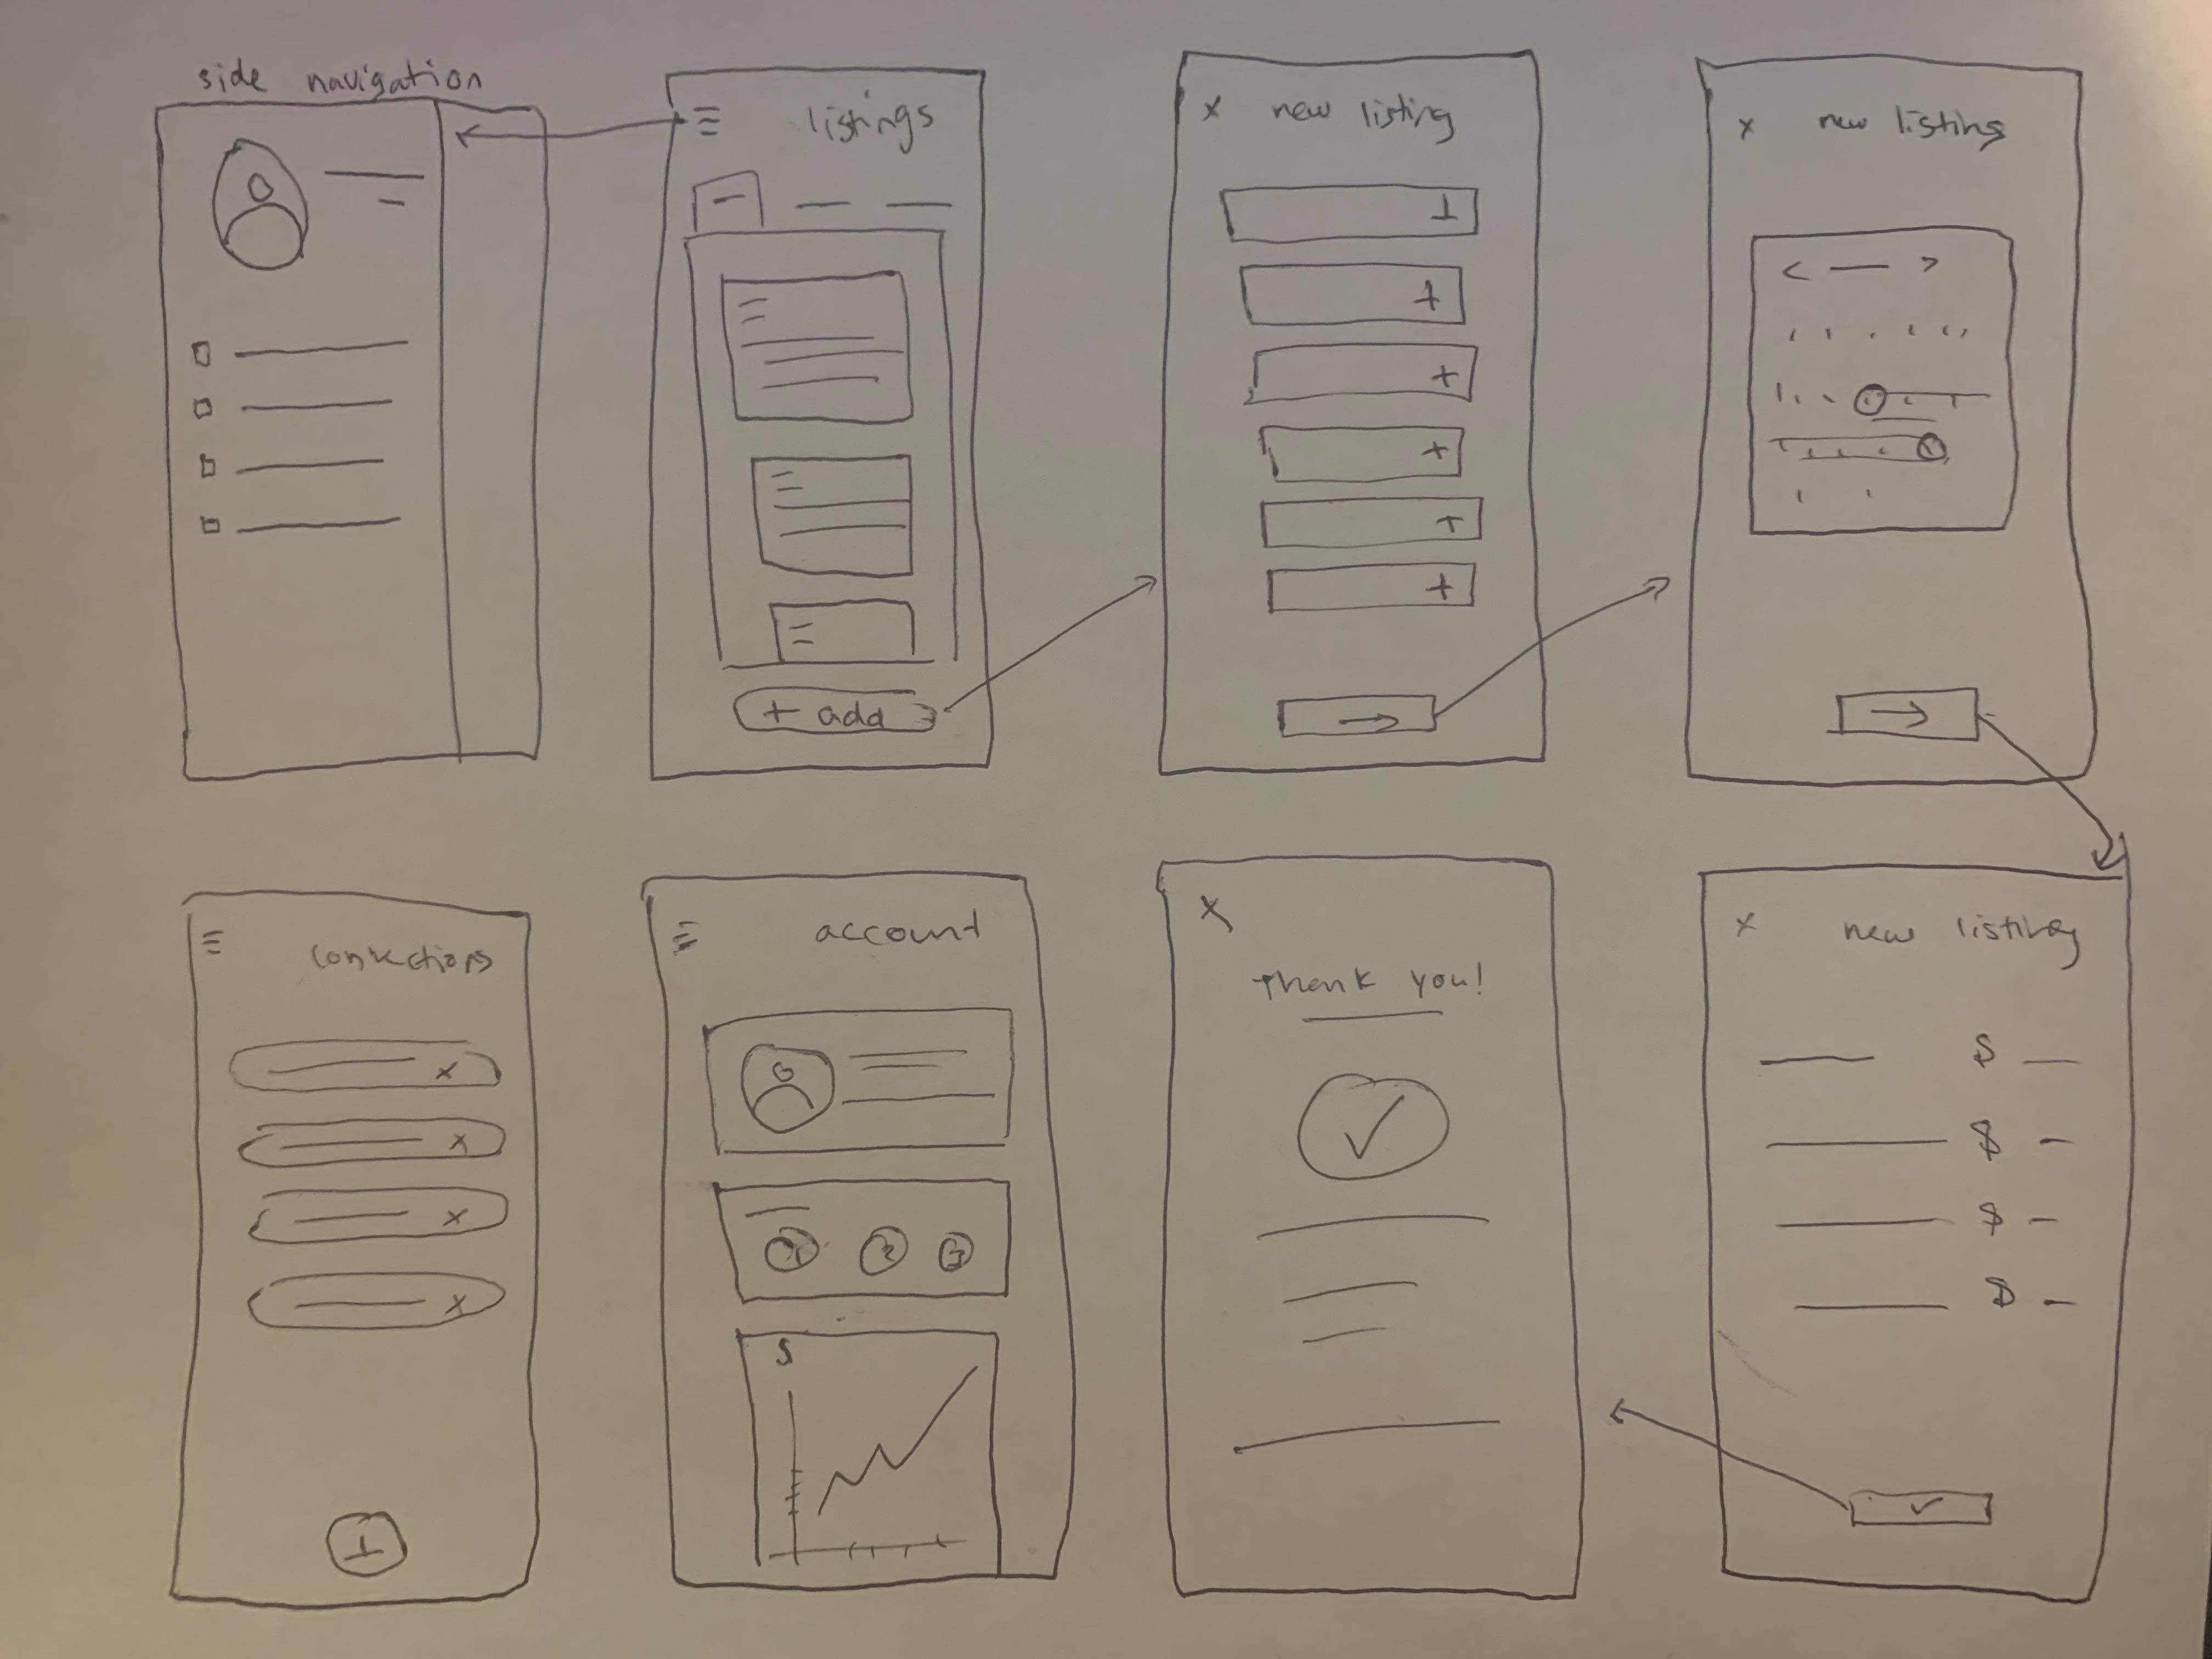 side navigation
listings
+ add
x new listing
+
+
+
+
+
+
x new listing
< >
connections
x
x
x
x
+
account
1 2 3
$
x
thank you!
x new listing
$
$
$
$